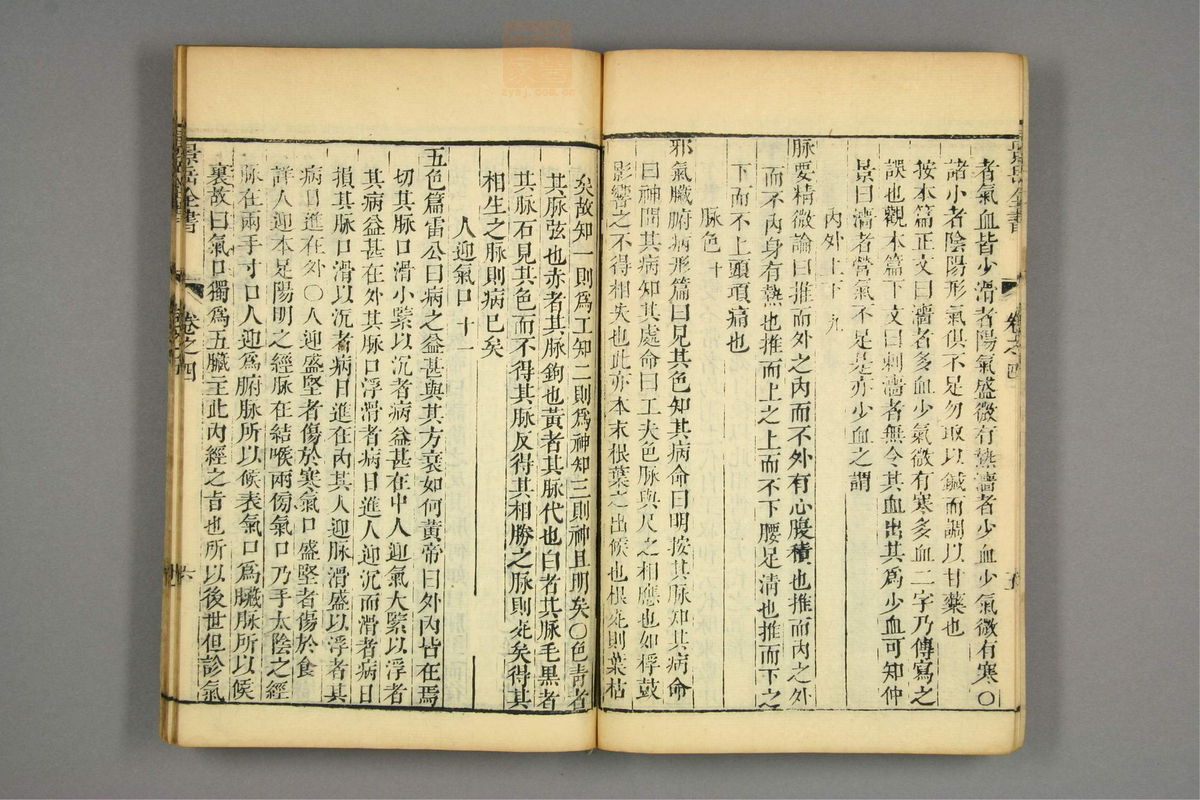 者氣血皆少滑者陽氣盛微有熱濇者少血少氣微有寒〇
諸小者陰陽形氣俱不足勿取以鍼而調以甘藥也
按本篇正文曰濇者多血少氣微有寒多血二字乃傳寫之
誤也觀本篇下文曰刺濇者無令其血出其爲少血可知仲
景曰濇者營氣不足是亦少血之謂
內外上下 九
脉要精微論曰推而外之內而不外有心腹積也推而內之外
而不內身有熱也推而上之上而不下腰足清也推而下之
下而不上頭項痛也
脉色 十
邪氣臟腑病形篇曰見其色知其病命曰明按其脉知其病命
曰神問其病知其處命曰工夫色脉與尺之相應也如桴鼓
影響之不得相失也此亦本末根葉之出候也根死則葉枯
矣故知一則爲工知二則爲神知三則神且明矣〇色青者
其脉弦也赤者其脉鉤也黃者其脉代也白者其脉毛黑者
其脉石見其色而不得其脉反得其相勝之脉則死矣得其
相生之脉則病已矣
人迎氣口 十一
五色篇雷公曰病之益甚與其方衰如何黃帝曰外內皆在焉
切其脉口滑小緊以沉者病益甚在中人迎氣大緊以浮者
其病益甚在外其脉口浮滑者病日進人迎沉而滑者病日
損其脉口滑以沉者病日進在內其人迎脉滑盛以浮者其
病日進在外〇人迎盛堅者傷於寒氣口盛堅者傷於食
詳人迎本足陽明之經脉在結喉兩傍氣口乃手太陰之經
脉在兩手寸口人迎爲腑脉所以候表氣口爲臟脉所以候
裏故曰氣口獨爲五臟主此內經之旨也所以後世但診氣
景岳全書
卷之四
六